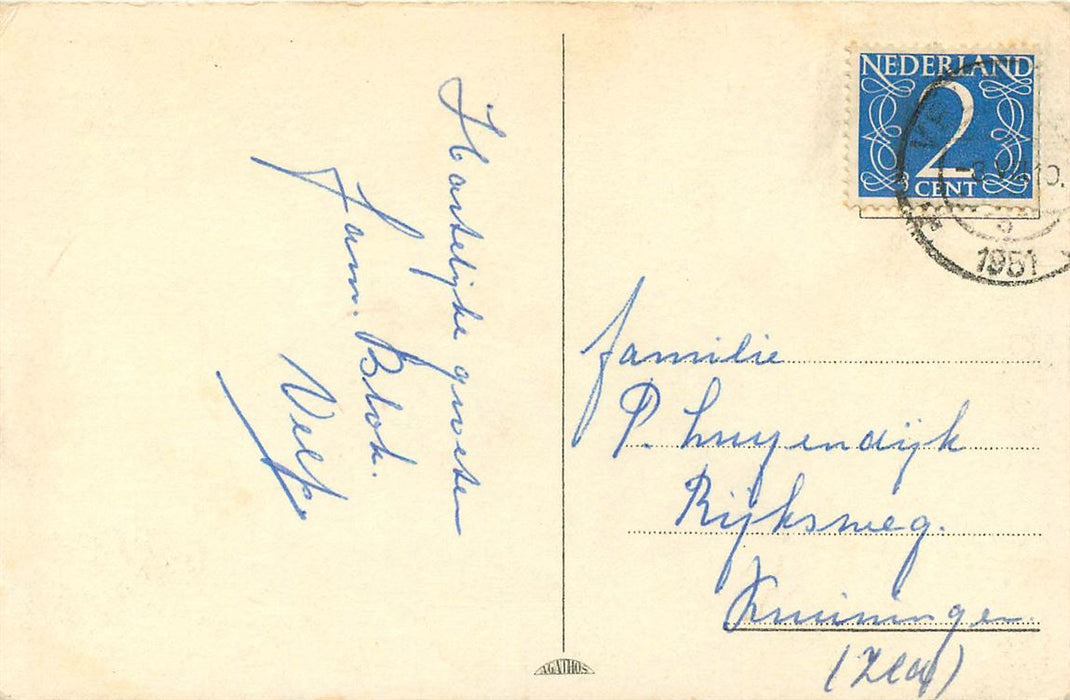 Hartelijke groeten
fam. Blok.
Velp
NEDERLAND
2
CENT
1951
familie
P. Luyendijk
Rijksweg.
Kruiningen.
(Zld)
AGATHOS